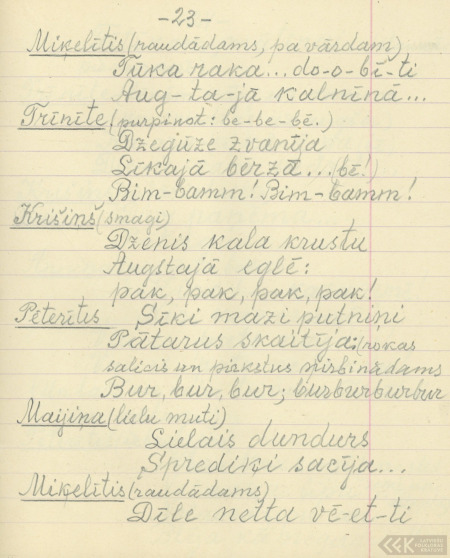 -23-
Miķelītis (raudādams, pa vārdam)
Tūka raka... do-o-bī-ti
Aug-ta-jā kalnīnā...
Trīnīte (purpinot: be-be-bē.)
Dzegūze zvanīja
Līkajā bērzā... (bē!)
Bim-bamm! Bim-bamm!
Krišiņš (smagi)
Dzenis kala krustu
Augstajā eglē:
pak, pak, pak, pak!
Pēterītis Sīki mazi putniņi
Pātarus skaitīja: (rokas
salicis un pirkstus ņirbinādams
Bur, bur, bur; burburburbur
Maijiņa (lielu muti)
Lielais dundurs
Sprediķi sacīja...
Miķelītis (raudādams)
Dīle netta vē-et-ti
LATVIEŠU
FOLKLORAS
KRĀTUVE